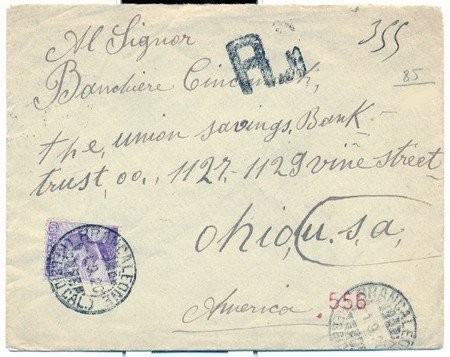 Al Signor
355
R. N
85
Banchiere Cincinnati,
the, union savings, Bank -
trust, oo., 1127 - 1129 vine street
ohio, u. s, a,
America
556
BRANCALEONE
BRANCALEONE